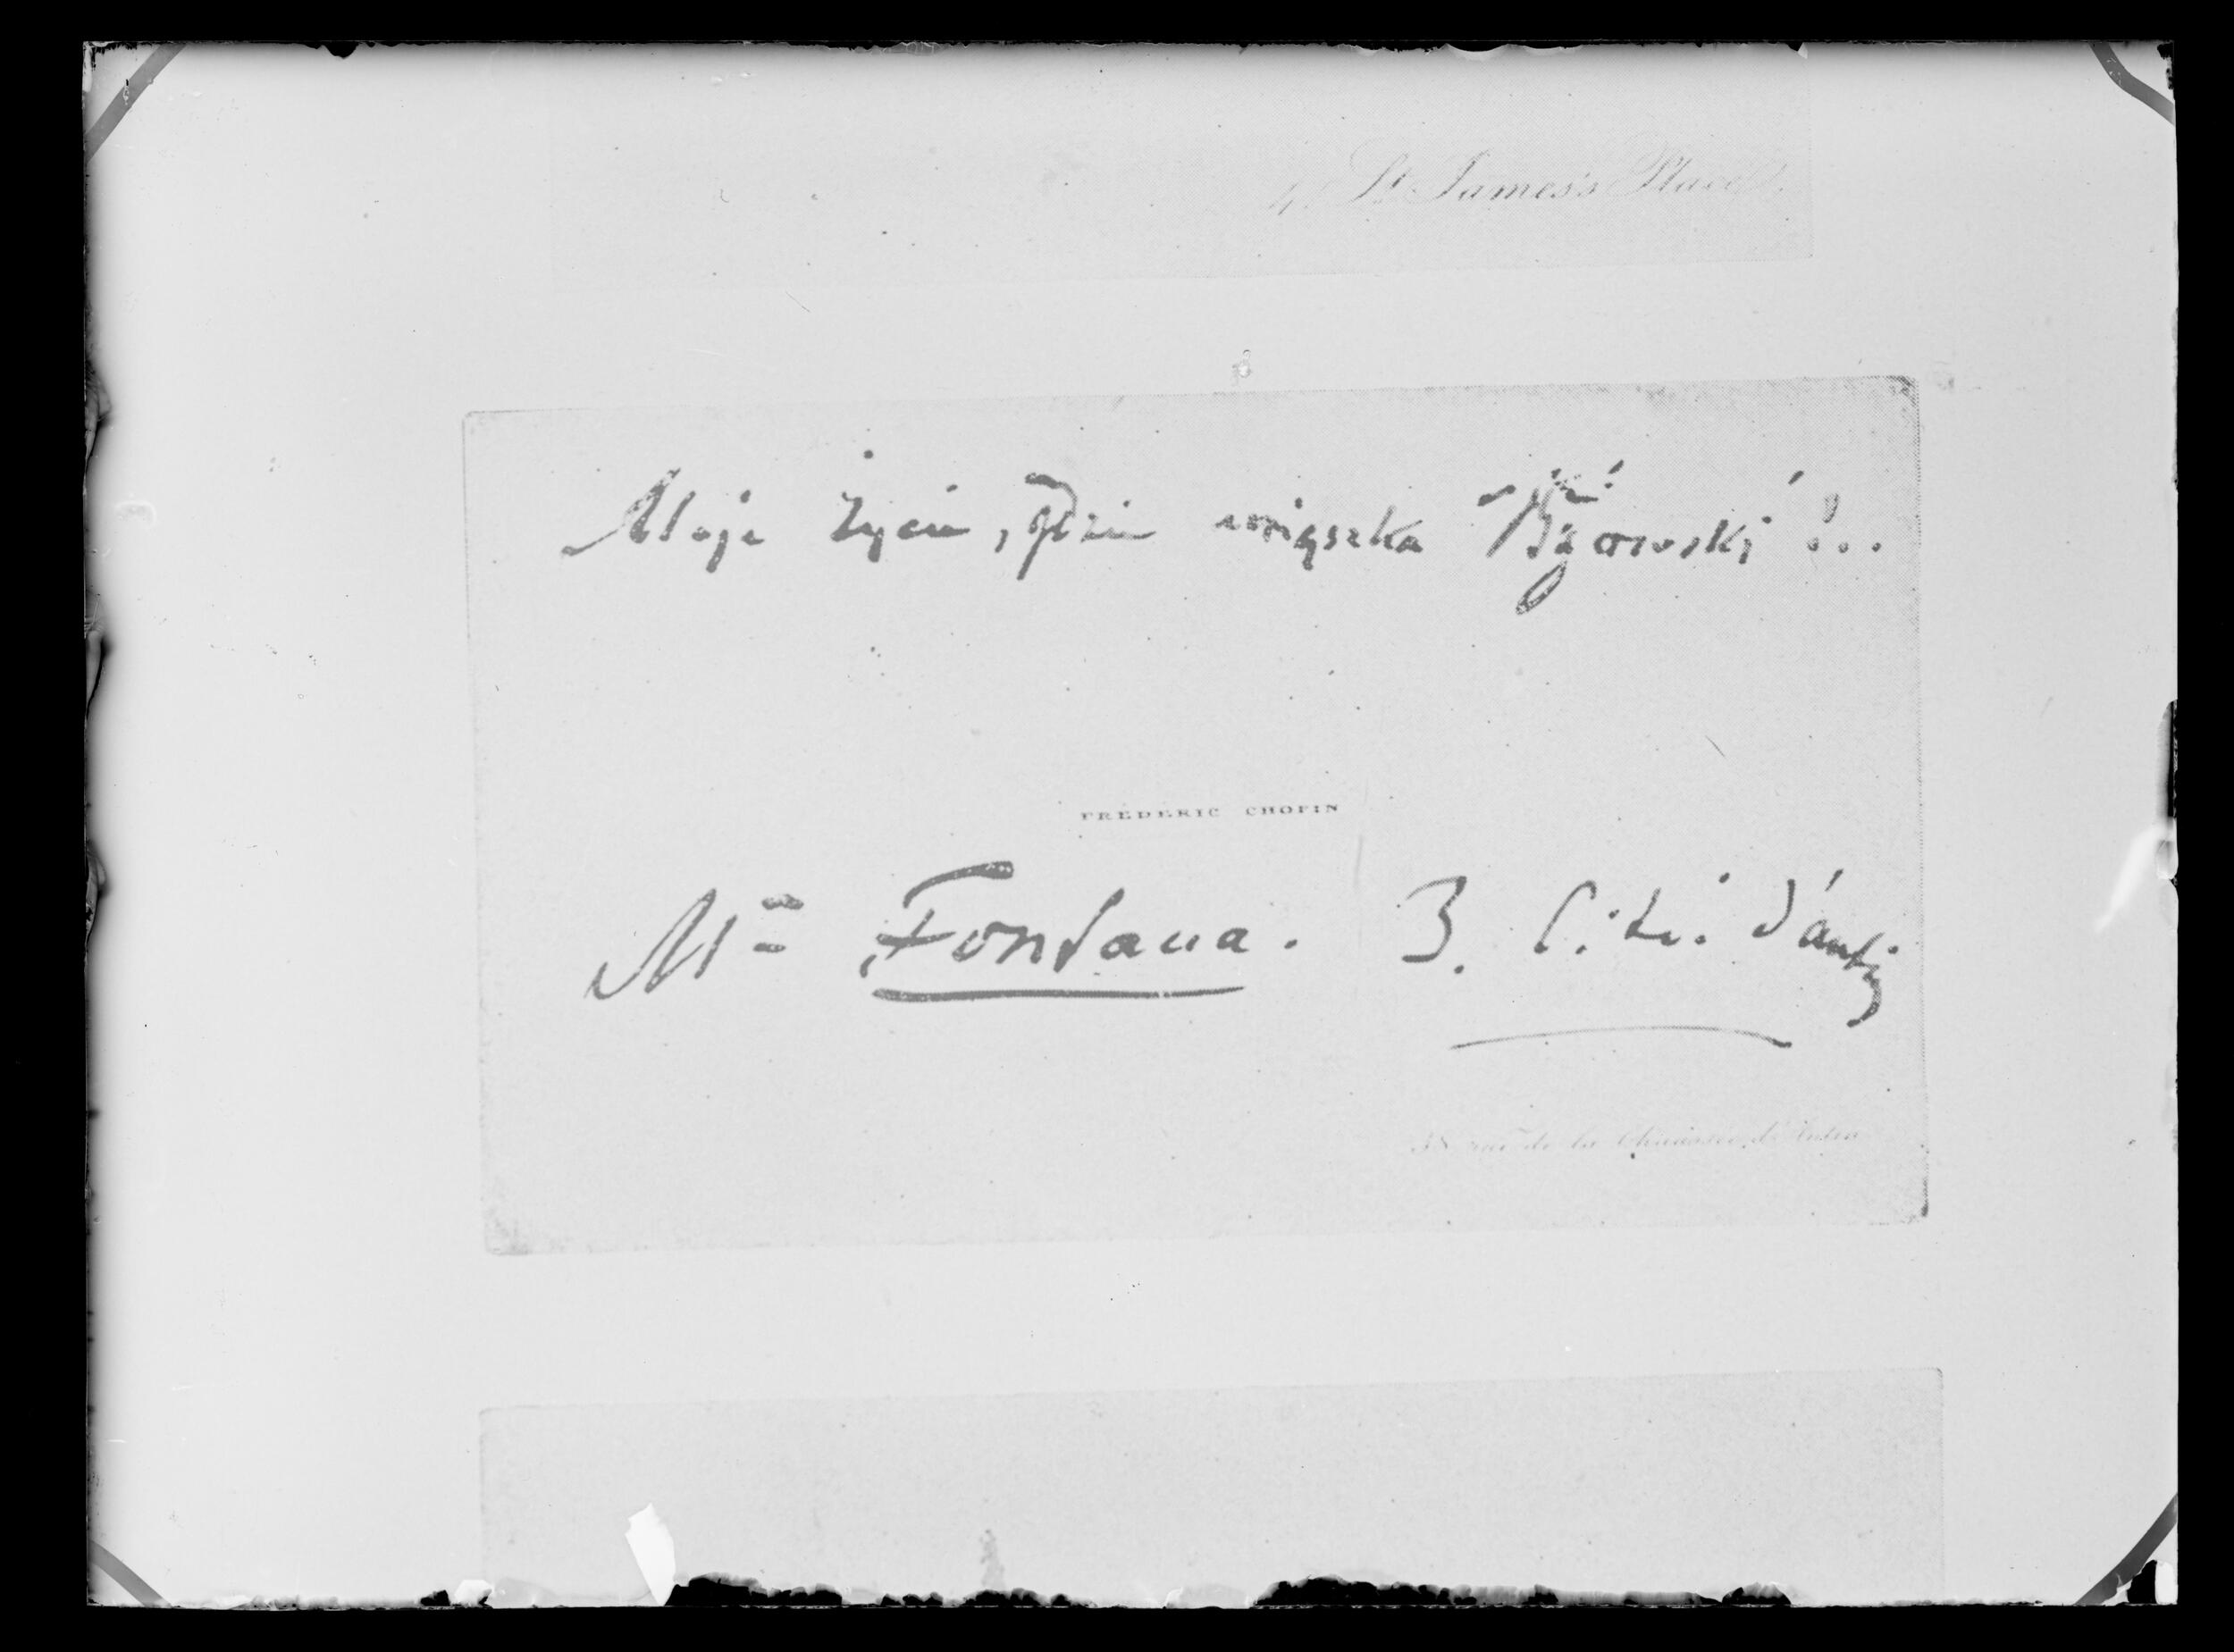 4. St James's Place.
Moje życie, gdzie mieszka
FRÉDÉRIC CHOPIN
Mr Fontana. 3. Cité d'antin
38 rue de la Chaussée d'Antin